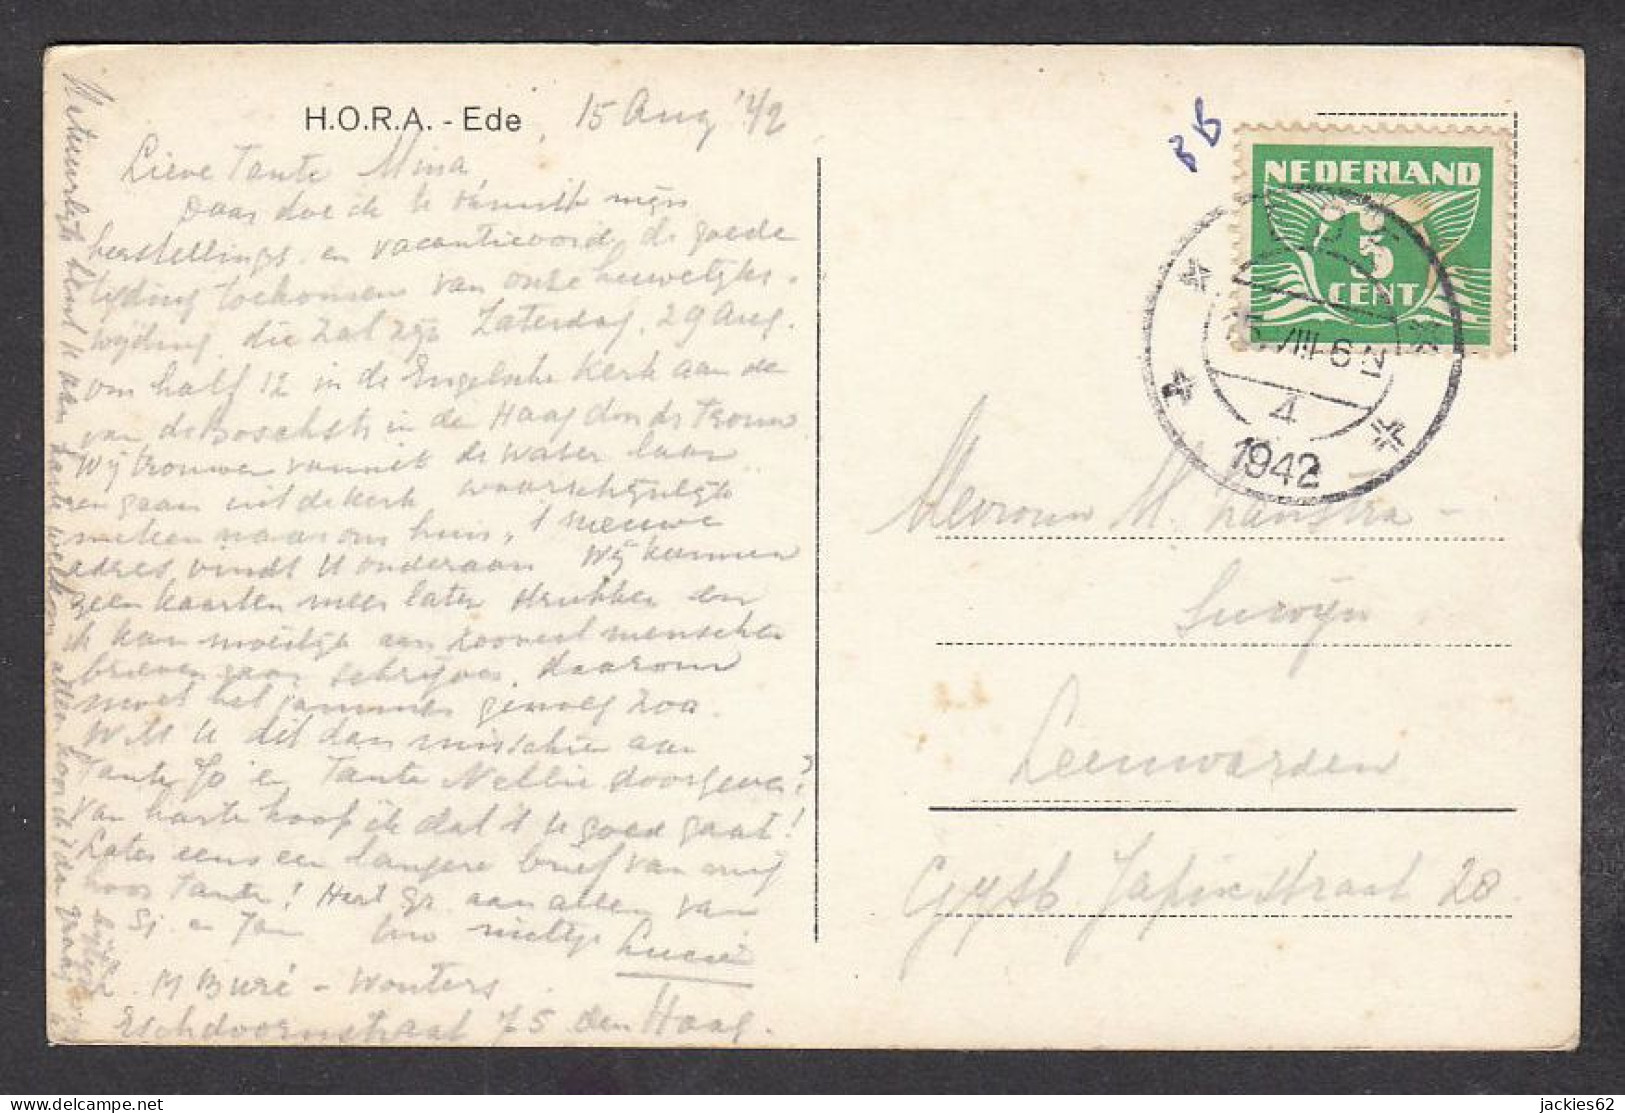 H.O.R.A. - Ede
15 Aug '42
Lieve Tante Mina,
Daar doe ik U vanuit mijn
herstellings en vacantieoord de goede
tijding toekomen van onze huwelijks-
wijding die zal zijn Zaterdag 29 Aug.
om half 12 in de Engelsche Kerk aan de
van den Boschstr in den Haag
Wij trouwen vanuit de
en gaan uit de kerk waarschijnlijk
meteen naar ons huis, 't nieuwe
adres vindt U onderaan Wij kunnen
geen kaarten meer laten drukken en
ik kan moeilijk aan zooveel menschen
brieven gaan schrijven, daarom
moet het jammer genoeg zoo.
Wilt U dit dan misschien aan
Tante Jo en Tante Nellie doorgeven?
Van harte hoop ik dat 't U goed gaat!
Later eens een langere brief van mij
hoor Tante! Hart gr. aan allen van
Sj. en Jan Uw nichtje Lucie
M Buré - Wouters
Eschdoornstraat 75 den Haag.
Natuurlijk bent U van harte welkom
BB
NEDERLAND
5
CENT
EDE
VIII 6
4
1942
Mevrouw M. Zanstra -
Leeuwarden
Gysb. Japicxstraat 28
jackies62